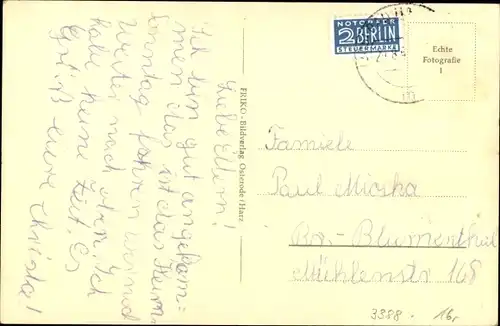 Liebe Eltern!
Ich bin gut angekom=
men das ist das Heim.
Sonntag fahren wir noch
weiter nach oben. Ich
habe keine Zeit. Es
Grüßt euere Christa!
FRIKO - Bildverlag Osterode/Harz
NOTOPFER
2 BERLIN
STEUERMARKE
Echte
Fotografie
1
Familie
Paul
Br.- Blumenthal
Mühlenstr 168
3388 - 16,